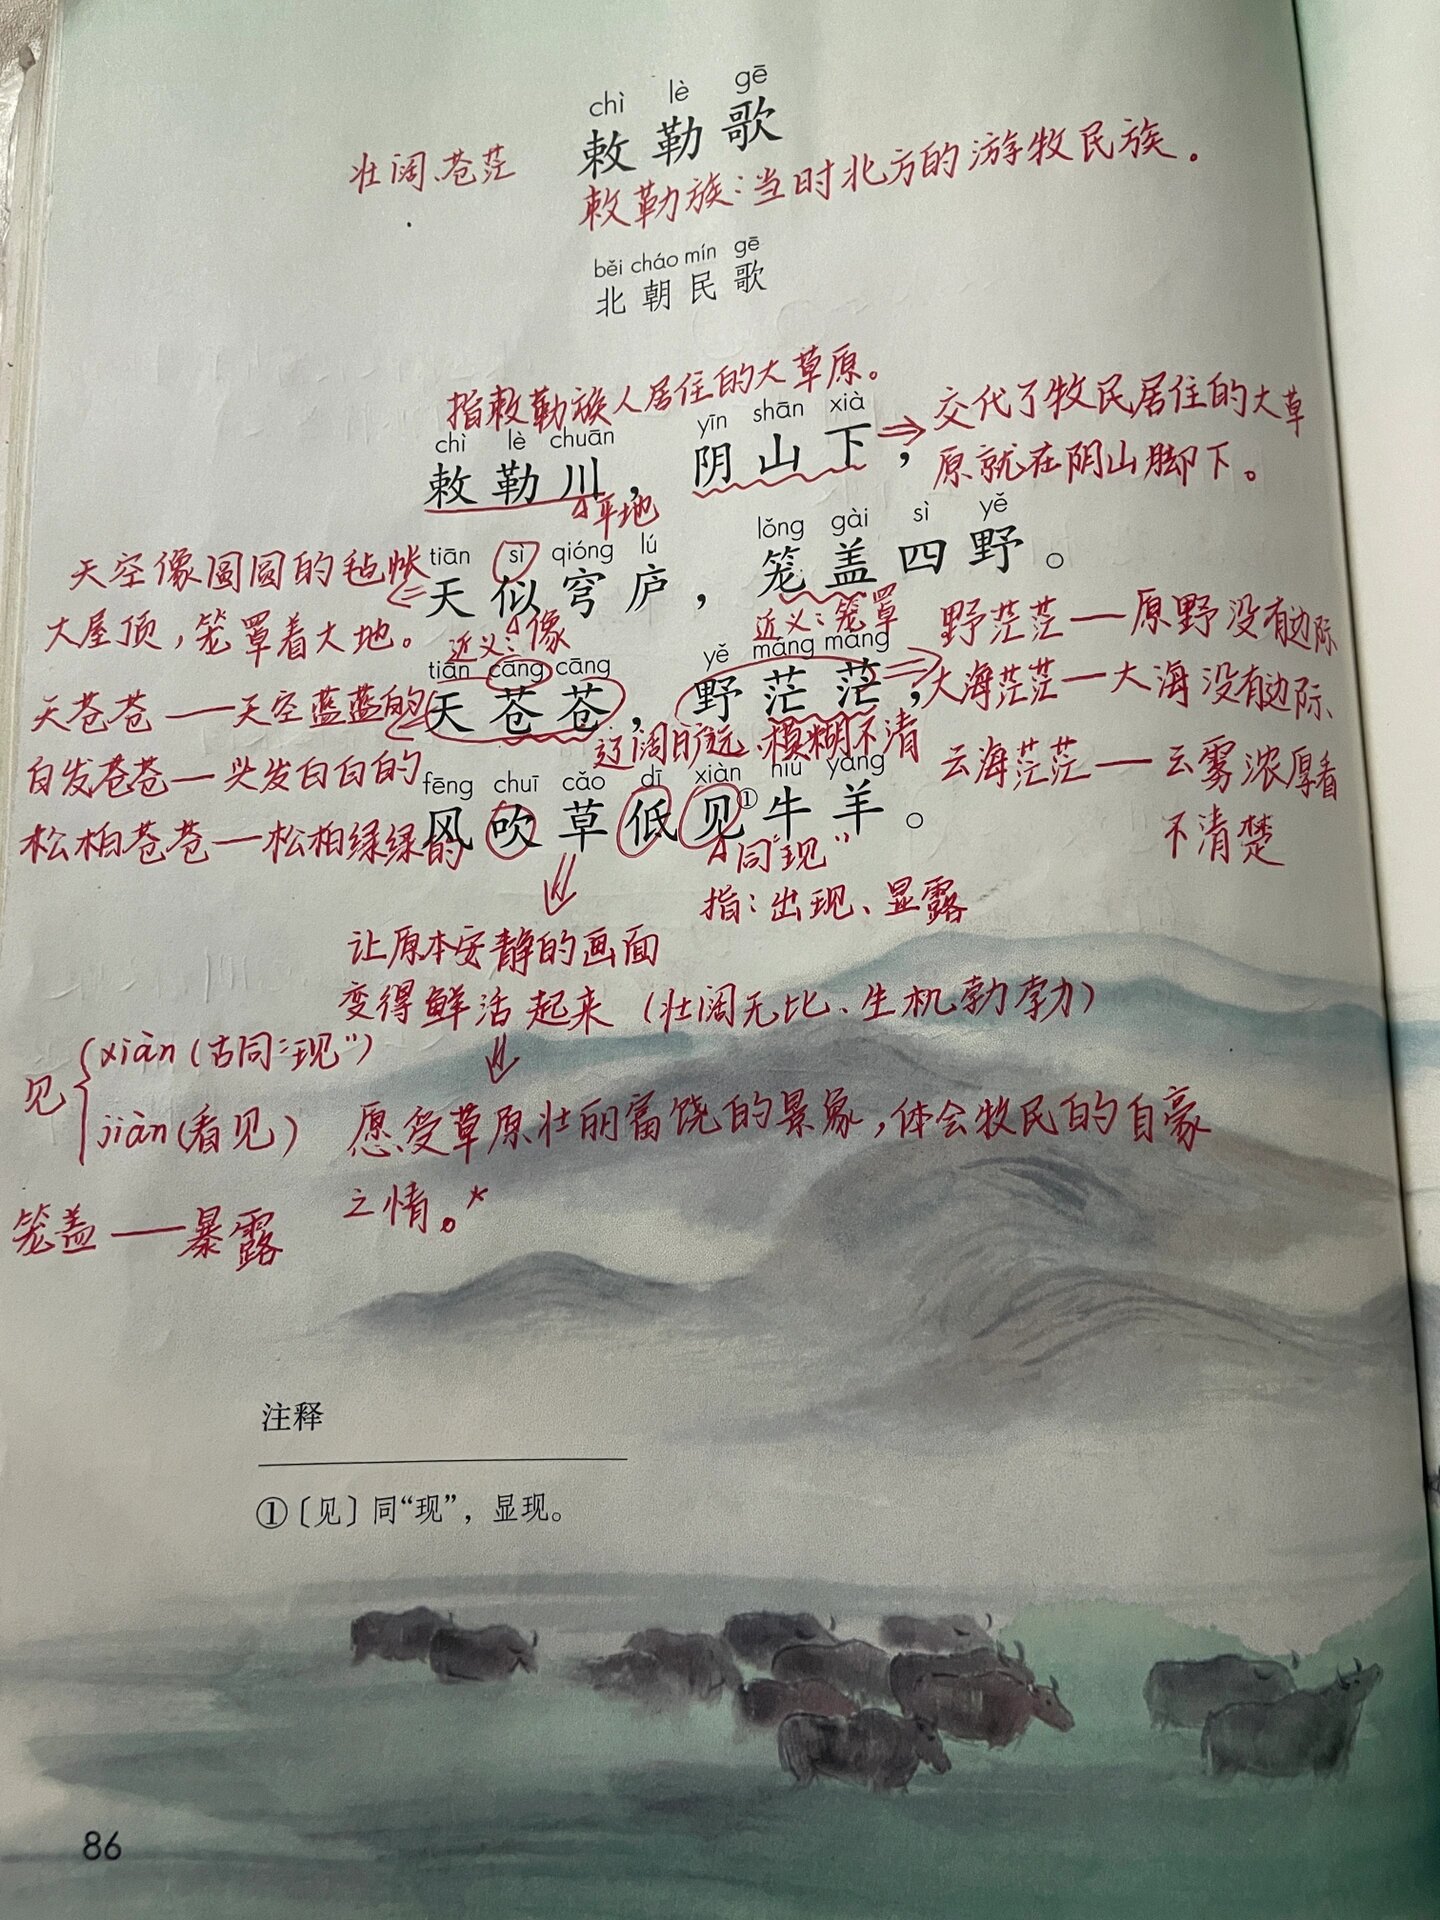 chì lè gē
敕勒歌
壮阔、苍茫
敕勒族：当时北方的游牧民族。
běi cháo mín gē
北朝民歌
指敕勒族人居住的大草原。
chì lè chuān yīn shān xià
敕勒川，阴山下，
平地
交代了牧民居住的大草
原就在阴山脚下。
tiān sì qióng lú lǒng gài sì yě
天似穹庐，笼盖四野。
天空像圆圆的毡帐
大屋顶，笼罩着大地。
近义：像
近义：笼罩
tiān cāng cāng yě máng máng
天苍苍，野茫茫，
天苍苍——天空蓝蓝的
白发苍苍—头发白白的
松柏苍苍—松柏绿绿的
辽阔旷远、模糊不清
野茫茫—原野没有边际
大海茫茫—大海没有边际、
云海茫茫—云雾浓厚看
不清楚
fēng chuī cǎo dī xiàn niú yáng
风吹草低见①牛羊。
同“现”
指：出现、显露
让原本安静的画面
变得鲜活起来（壮阔无比、生机勃勃）
见 xiàn（古同“现”）
jiàn（看见）
感受草原壮丽富饶的景象，体会牧民的自豪
之情。*
笼盖——暴露
注释
①〔见〕同“现”，显现。
86